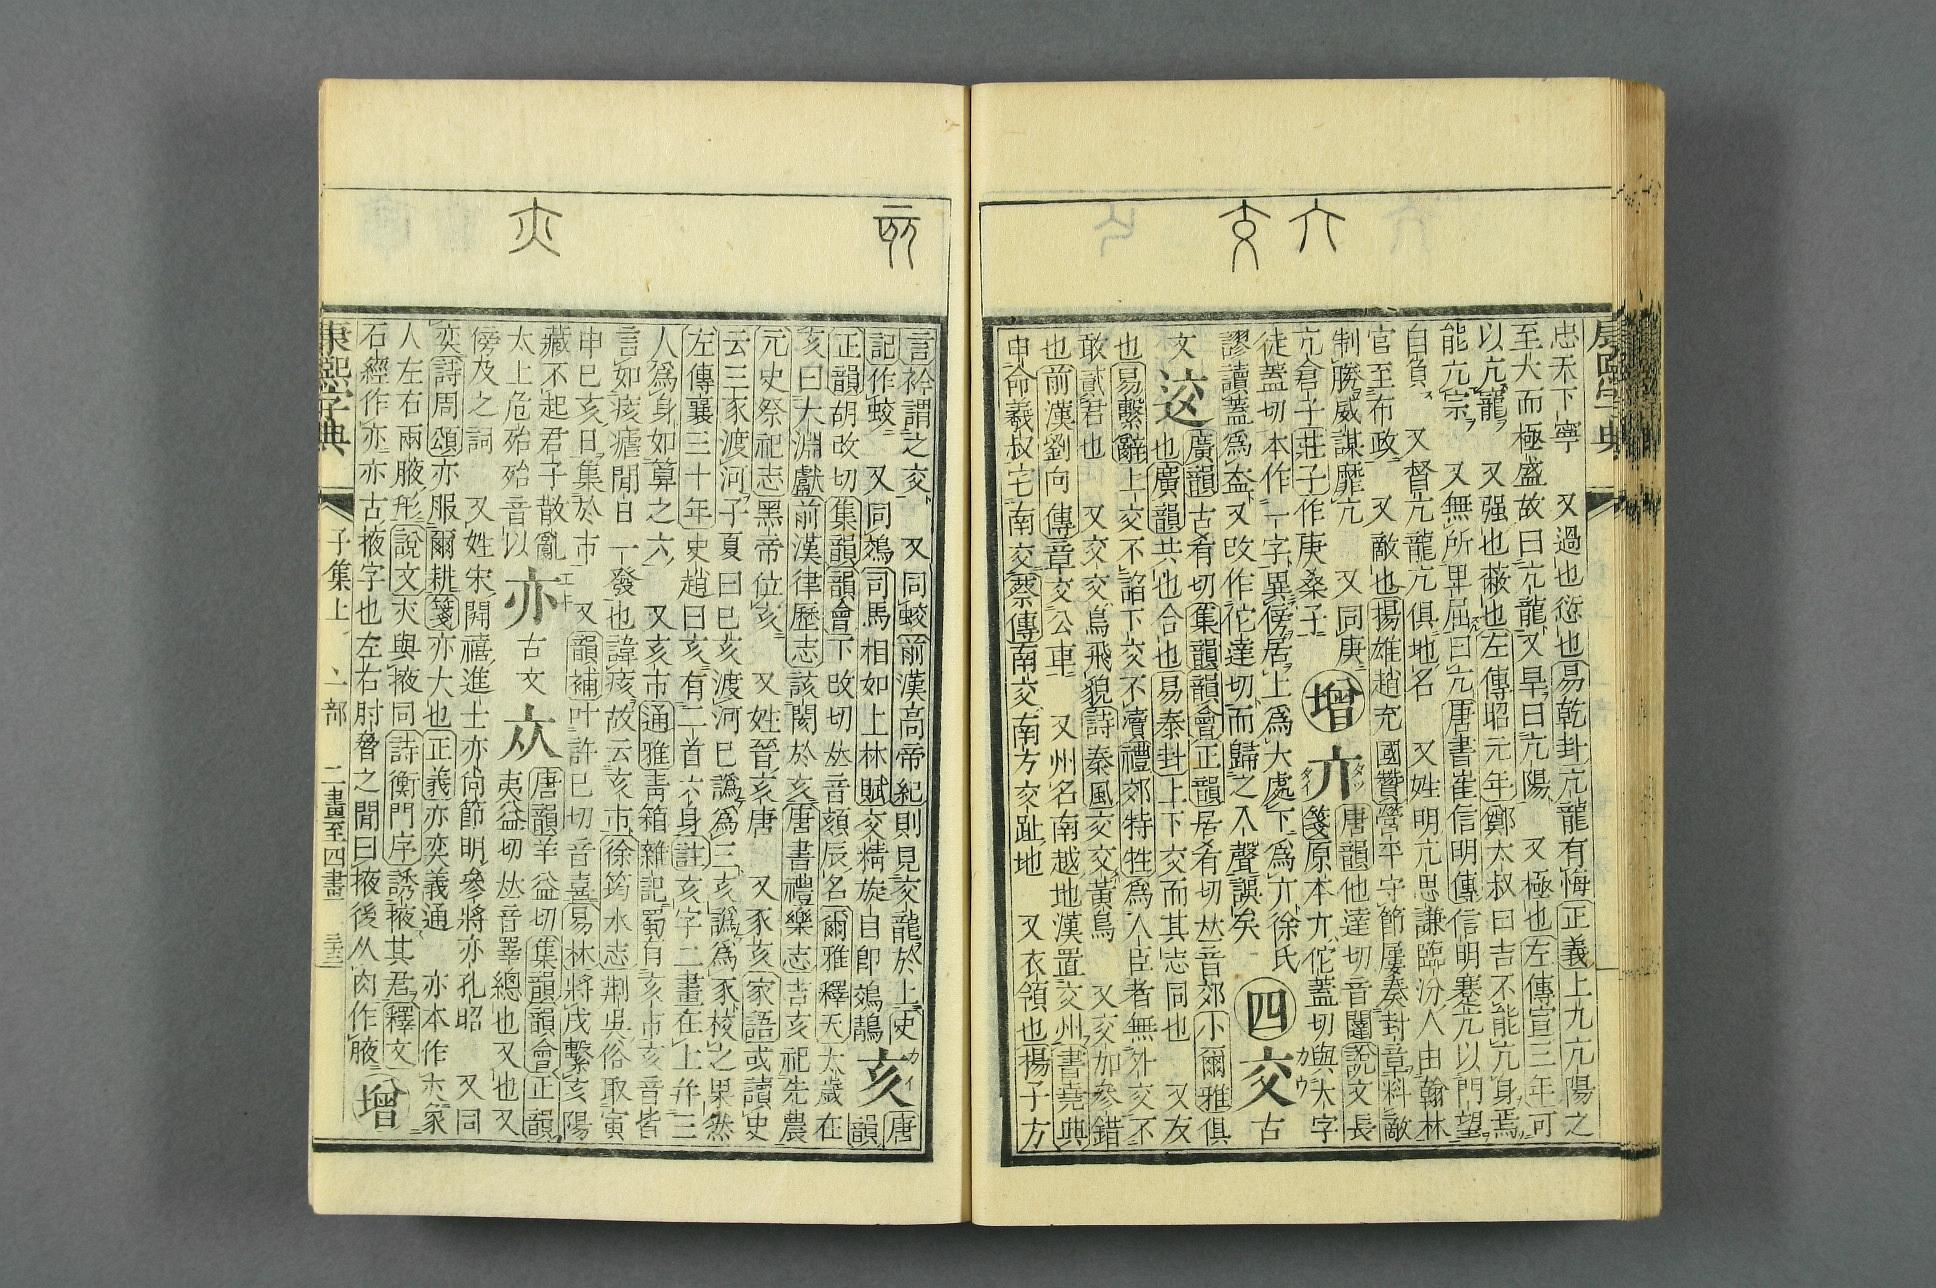 忠天下寧　又過也愆也易乾卦亢龍有悔正義上九亢陽之
至大而極盛故曰亢龍又旱曰亢陽　又極也左傳宣三年可
以亢寵　又强也蔽也左傳昭元年鄭太叔曰吉不能亢身焉
能亢宗　又無所卑屈曰亢唐書崔信明傳信明蹇亢以門望
自負　又督亢龍亢俱地名　又姓明亢思謙臨汾人由翰林
官至布政　又敵也揚雄趙充國贊營平守節屢奏封章料敵
制勝威謀靡亢　又同庚增亣唐韻他達切音闥說文長
亢倉子莊子作庚桑子　箋原本亣佗蓋切與大字
徒蓋切本作一字異傍居上爲大處下爲亣徐氏
謬讀蓋爲盍又改作佗達切而歸之入聲誤矣　四交古
文𨒫廣韻古肴切集韻韻會正韻居肴切𠀤音郊小爾雅俱
也廣韻共也合也易泰卦上下交而其志同也　又友
也易繫辭上交不諂下交不瀆禮郊特牲爲人臣者無外交不
敢貳君也　又交交鳥飛貌詩秦風交交黃鳥　又交加參錯
也前漢劉向傳章交公車　又州名南越地漢置交州書堯典
申命羲叔宅南交蔡傳南交南方交趾地　又衣領也揚子方
言衿謂之交　又同蛟前漢高帝紀則見交龍於上史
記作蛟　又同鵁司馬相如上林賦交精旋目卽鵁鶄　亥唐韻
正韻胡改切集韻韻會下改切𠀤音頦辰名爾雅釋天太歲在
亥曰大淵獻前漢律歷志該閡於亥唐書禮樂志吉亥祀先農
元史祭祀志黑帝位亥　又姓晉亥唐　又豕亥家語或讀史
云三豕渡河子夏曰己亥渡河己譌爲三亥譌爲豕校之果然
左傳襄三十年史趙曰亥有二首六身註亥字二畫在上幷三
人爲身如算之六　又亥市通雅靑箱雜記蜀有亥市亥音皆
言如痎瘧閒日一發也諱痎故云亥市徐筠水志荆吳俗取寅
申巳亥日集於市　又韻補叶許已切音喜易林將戌繫亥陽
藏不起君子散亂　
太上危殆殆音以　亦古文𠅃唐韻羊益切集韻韻會正韻
夷益切𠀤音睪總也又也又
傍及之詞　又姓宋開禧進士亦尙節明參將亦孔昭　又同
奕詩周頌亦服爾耕箋亦大也正義亦奕義通　亦本作夾家
人左右兩腋形說文夾與掖同詩衡門序誘掖其君釋文
石經作亦亦古掖字也左右肘脅之閒曰掖後从肉作腋　增
康熙字典　子集上　亠部　二畫至四畫